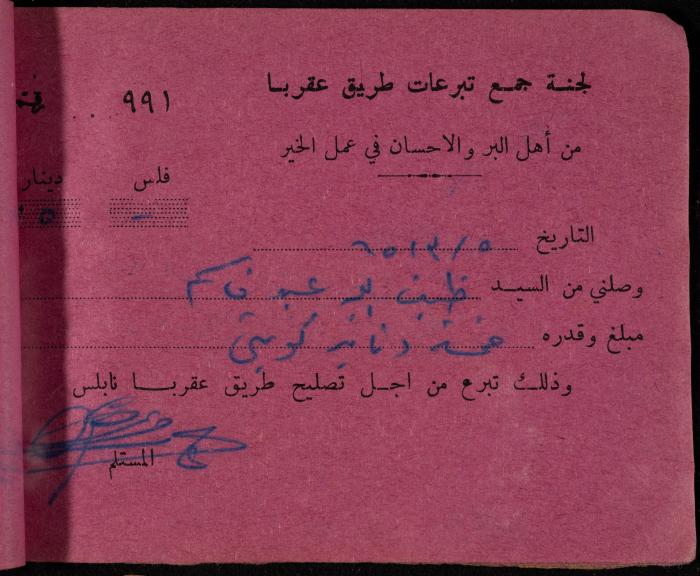 لجنة جمع تبرعات طريق عقربا
٩٩١
من أهل البر والاحسان في عمل الخير
فلس دينار
-
التاريخ
وصلني من السيد
مبلغ وقدره خمسة دنانير كويتي
وذلك تبرع من اجل تصليح طريق عقربا نابلس
المستلم